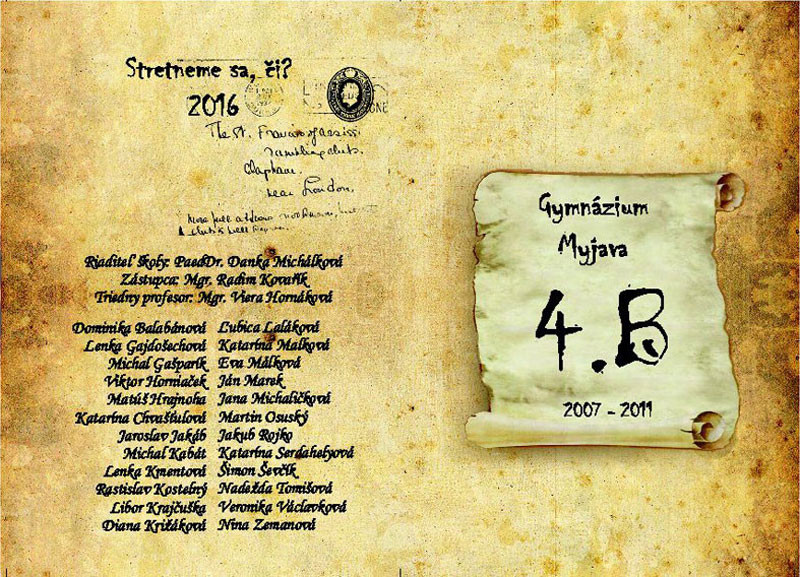 Stretneme sa, či?
2016
The St. Francis of assissi
rambling club.
Clapham.
near London.
Riaditeľ školy: PaedDr. Danka Michálková
Zástupca: Mgr. Radim Kovařík
Triedny profesor: Mgr. Viera Hornáková
Dominika Balabánová Ľubica Laláková
Lenka Gajdošechová Katarína Malková
Michal Gašparík Eva Málková
Viktor Horniaček Ján Marek
Matúš Hrajnoha Jana Michaličková
Katarína Chvašťulová Martin Osuský
Jaroslav Jakáb Jakub Rojko
Michal Kabát Katarína Serdahelyová
Lenka Kmentová Šimon Ševčík
Rastislav Kostelný Nadežda Tomišová
Libor Krajčuška Veronika Václavková
Diana Križáková Nina Zemanová
Gymnázium
Myjava
4.B
2007 - 2011